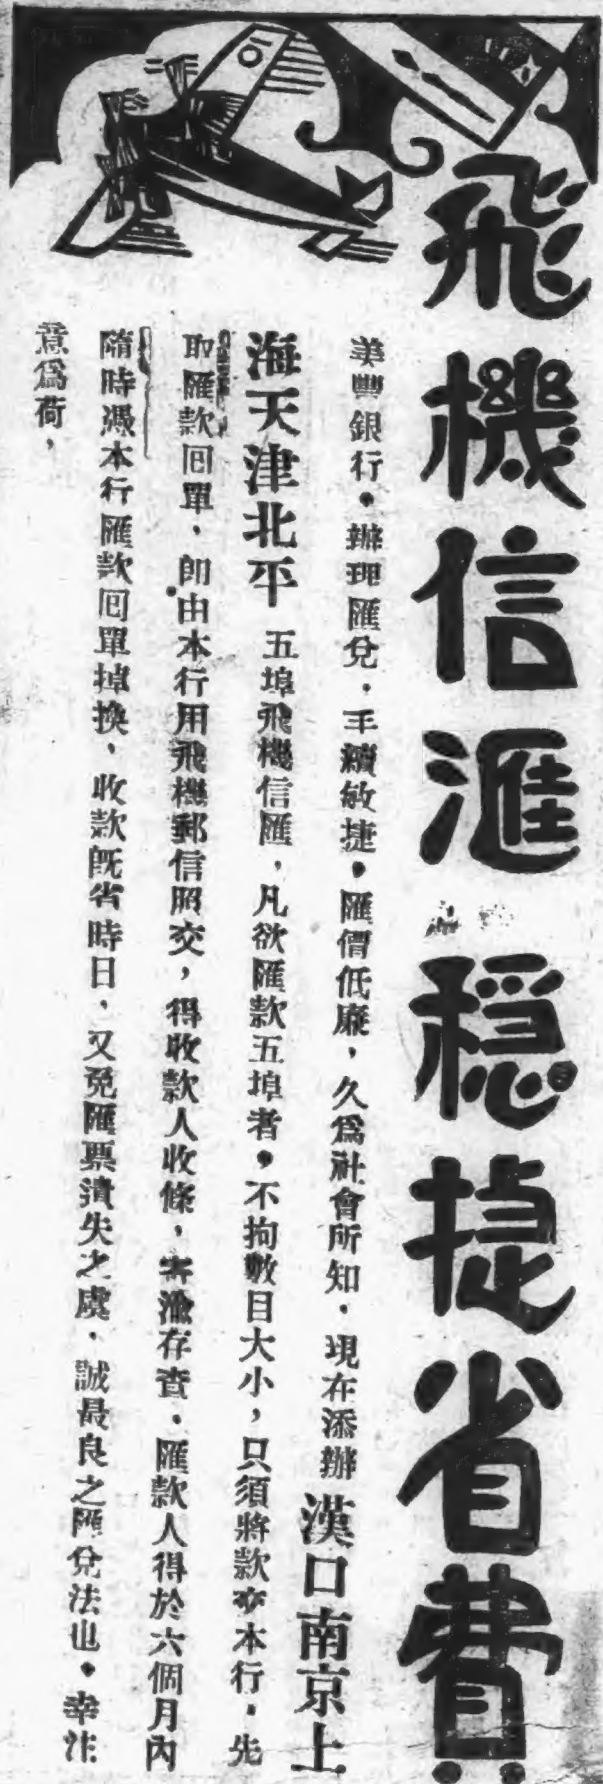 飛機信滙 穩捷省費
美豐銀行。辦理匯兌．手續敏捷。匯價低廉，久爲社會所知．現在添辦 漢口南京上
海天津北平 五埠飛機信匯，凡欲匯款五埠者。不拘數目大小，只須將款交本行，先
取匯款囘單、卽由本行用飛機郵信照交，得收款人收條，寄渝存查．匯款人得於六個月內
隨時憑本行匯款囘單掉換、收款旣省時日．又免匯票遺失之虞．誠最良之匯兌法也。幸注
意爲荷，